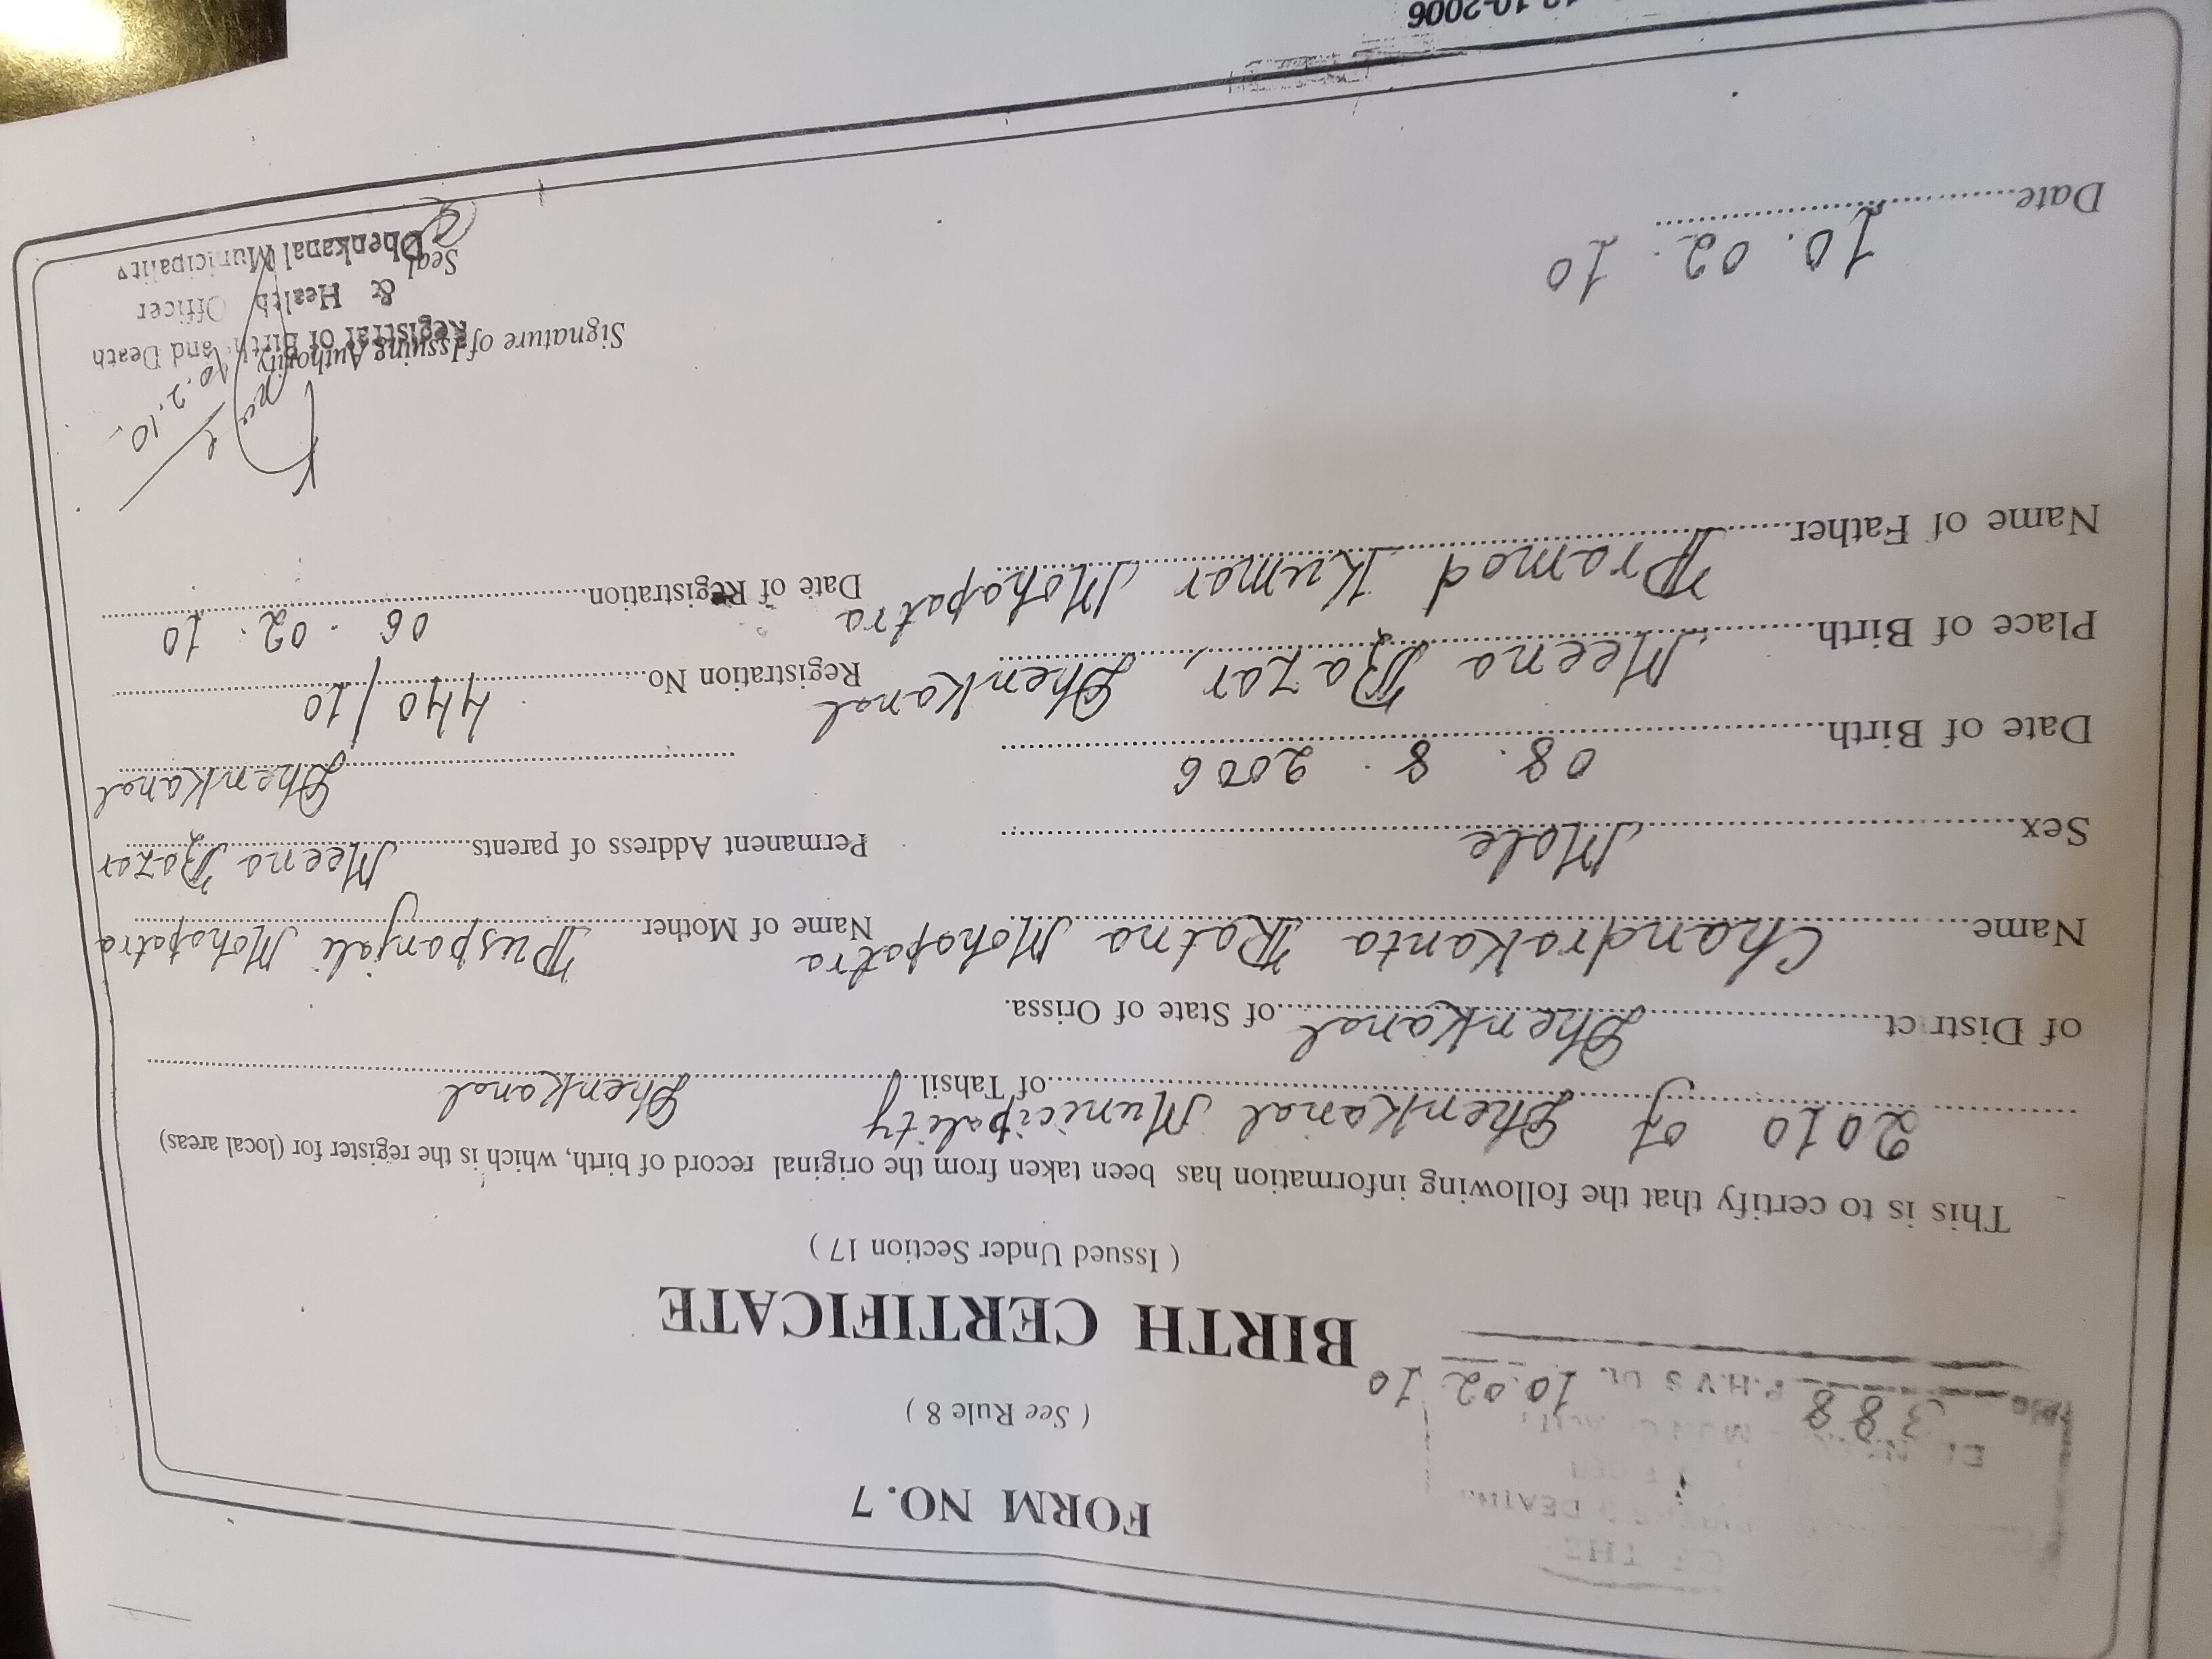 OF THE
DEATH
388 10.02.10
P.H.V S
FORM NO. 7
( See Rule 8 )
BIRTH CERTIFICATE
( Issued Under Section 17 )
This is to certify that the following information has been taken from the original record of birth, which is the register for (local areas)
2010 of Dhenkanal Municipality of Tahsil Dhenkanal
of District Dhenkanal of State of Orissa.
Name Chandrakanta Ratna Mohapatra Name of Mother Puspanjali Mohapatra
Sex Male Permanent Address of parents Meena Bazar
Date of Birth 08. 8. 2006 Dhenkanal
Place of Birth Meena Bazar, Dhenkanal Registration No 440/10
Name of Father Pramod Kumar Mohapatra Date of Registration 06.02.10
10.2.10
Signature of Issuing Authority
Registrar of Birth and Death
& Health Officer
Seal
Dhenkanal Municipality
Date 10.02.10
10-2006